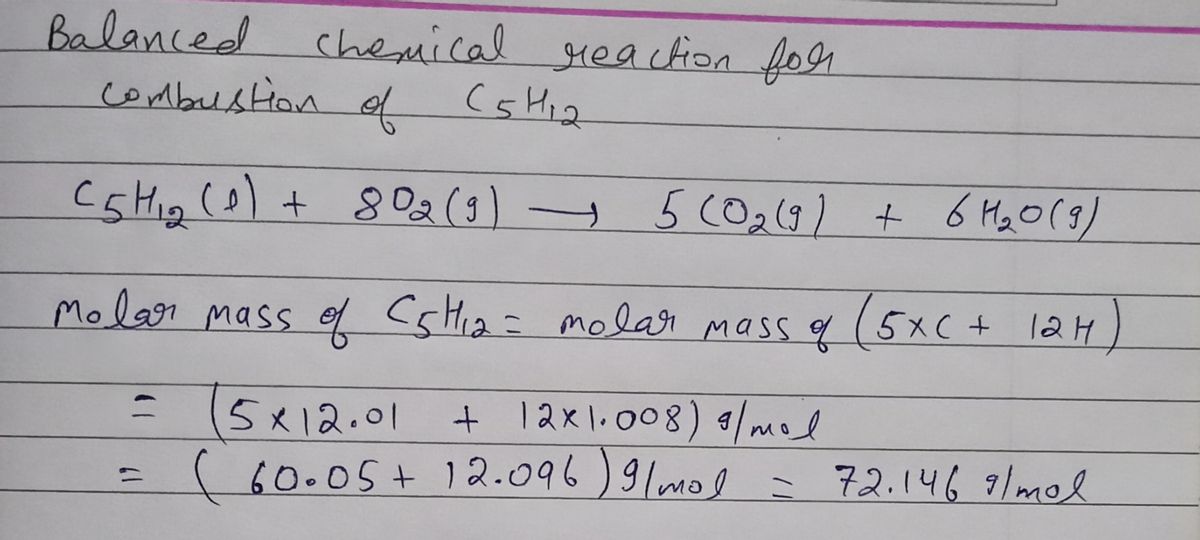 Balanced chemical reaction for
combustion of C5H12
C5H12 (l) + 8O2 (g) → 5 CO2 (g) + 6 H2O (g)
Molar mass of C5H12 = molar mass of (5×C + 12H)
= (5×12.01 + 12×1.008) g/mol
= (60.05 + 12.096) g/mol = 72.146 g/mol